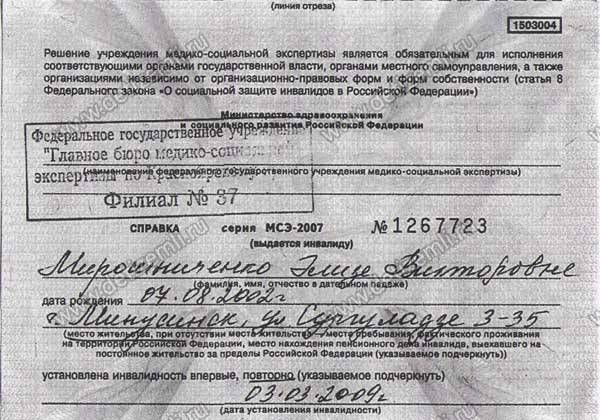 (линия отреза)
1503004
Решение учреждения медико-социальной экспертизы является обязательным для исполнения
соответствующими органами государственной власти, органами местного самоуправления, а также
организациями независимо от организационно-правовых форм и форм собственности (статья 8
Федерального закона «О социальной защите инвалидов в Российской Федерации»)
Министерство здравоохранения
и социального развития Российской Федерации
Федеральное государственное учреждение
"Главное бюро медико-социальной
экспертизы по Красноярскому
(наименование федерального государственного учреждения медико-социальной экспертизы)
Филиал № 37
СПРАВКА серия МСЭ-2007 № 1267723
(выдается инвалиду)
Мирошниченко Элице Викторовне
(фамилия, имя, отчество в дательном падеже)
дата рождения 07.08.2002г
г. Минусинск, ул 3-35
(место жительства, при отсутствии места жительства - место пребывания, фактического проживания
на территории Российской Федерации, место нахождения пенсионного дела инвалида, выехавшего на
постоянное жительство за пределы Российской Федерации (указываемое подчеркнуть))
установлена инвалидность впервые, повторно (указываемое подчеркнуть)
03.03.2009г
(дата установления инвалидности)